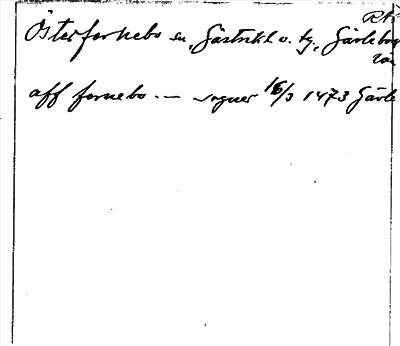 RA
Österfornebo sn, Gästrikl o. tg, Gävleborg
län
aff fornebo. — sogner 16/3 1473 Gävle